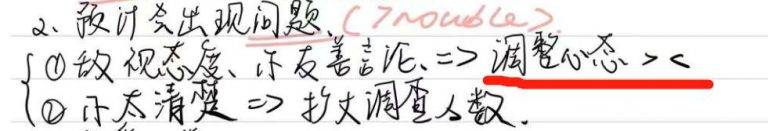 2、预计会出现问题.(Trouble)
①敌视态度、不友善言论.=>调整心态 ><
②不太清楚=>扩大调查人数.